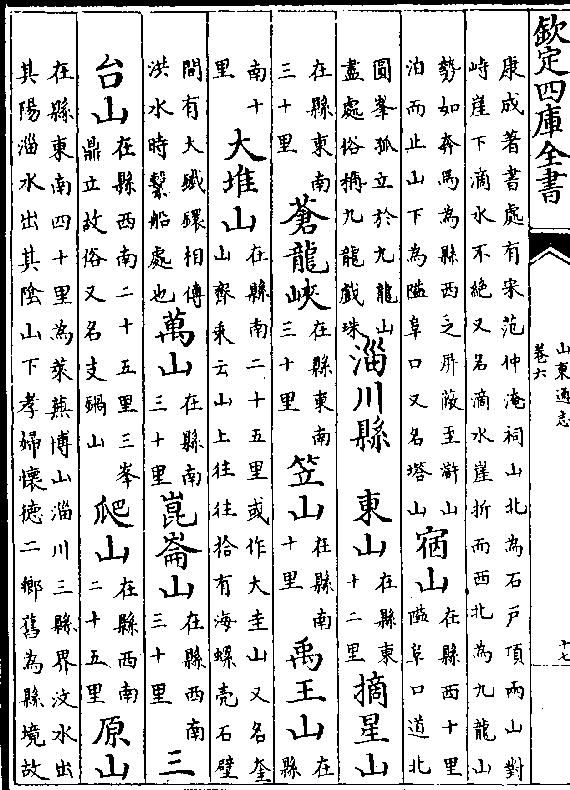 欽定四庫全書
山東通志
卷六
十七
康成著書處有宋范仲淹祠山北為石戸頂兩山對
峙崖下滴水不絶又名滴水崖折而西北為九龍山
勢如奔馬為縣西之屏蔽至滸山
泊而止山下為隘阜口又名塔山
宿山
在縣西十里
隘阜口道北
圓峯孤立於九龍山
盡處俗稱九龍戲珠
淄川縣
東山
在縣東
十二里
摘星山
在縣東南
三十里
蒼龍峽
在縣東南
三十里
笠山
在縣南
十里
禹王山
在
縣
南十
里
大堆山
在縣南二十五里或作大圭山又名奎
山齊乘云山上往往拾有海螺壳石壁
間有大鐵鐶相傳
洪水時繫船處也
萬山
在縣南
三十里
崑崙山
在縣西南
三十里
三
台山
在縣西南二十五里三峯
鼎立故俗又名支鍋山
爬山
在縣西南
二十五里
原山
在縣東南四十里為萊蕪博山淄川三縣界汶水出
其陽淄水出其陰山下孝婦懷德二鄉舊為縣境故